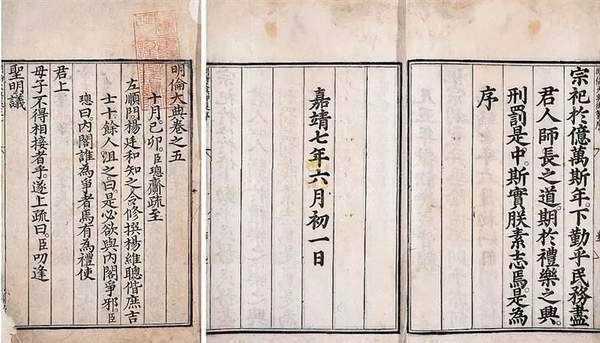 宗祀於億萬斯年。下勤乎民務盡
君人師長之道期於禮樂之興
刑罰是中。斯實朕素志焉。是為
序
嘉靖七年六月初一日
明倫大典卷之五
十月己卯。臣璁齎疏至
左順門楊廷和知之令修撰楊維聰偕庶吉
士十餘人沮之曰是必欲與內閣爭邪。臣
璁曰內閣誰為爭者焉有為禮使
君上
母子不得相接者乎。遂上疏曰。臣叨逢
聖明議